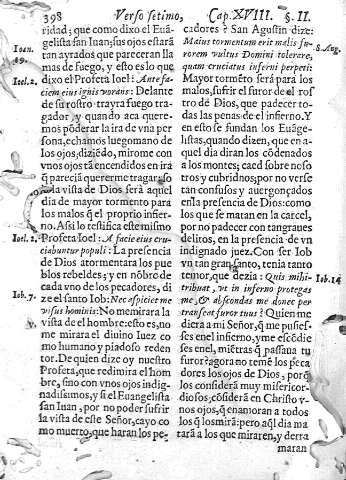 398 Verso setimo, Cap. XVIII. §. II.
ridad; que como dixo el Euã-
gelista san Iuan; sus ojos estarã
tan ayrados que pareceran lla-
mas de fuego, y esto es lo que
dixo el Profeta Ioel: Ante fa-
ciem eius ignis vorans: Delante
de su rostro trayra fuego tra-
gador, y quando aca quere-
mos põderar la ira de vna per
sona, echamos luego mano de
los ojos, diziẽdo, mirome con
vnos ojos tã encendidos en irã
q̃ parecia quererme tragar: so
la vista de Dios serà aquel
dia de mayor tormento para
los malos q̃ el proprio infier-
no. Asi lo testifica este mismo
Profeta Ioel: A facie eius cru-
ciabuntur populi: La presencia
de Dios atormentara los pue
blos rebeldes; y en nõbre de
cada vno de los pecadores, di
ze el santo Iob: Nec aspiciet me
visus hominis: No me mirara la
vista de el hombre: esto es, no
me mirara el diuino Iuez co
mo humano y piadoso reden
tor. De quien dize oy nuestro
Profeta, que redimira el hom
bre, sino con vnos ojos indig-
nadissimos, y si el Euangelista
san Iuan, por no poder sufrir
la vista de este Señor, cayo co
mo muerto, que haran los pe-
Ioan.
19.
Ioel. 2.
Ioel. 2.
Iob. 7.
cadores? San Agustin dize:
Maius tormentum erit malis fu-
rorem vultus Domini tolerare,
quam cruciatus inferni perpeti:
Mayor tormẽto serà para los
malos, sufrir el furor de el ros
tro de Dios, que padecer to-
das las penas de el infierno. Y
en esto se fundan los Euãge-
listas, quando dizen, que en a-
quel dia diran los cõdenados
a los montes; caed sobre noso
tros y cubridnos; por no verse
tan confusos y auergonçados
en la presencia de Dios: como
los que se matan en la carcel,
por no padecer con tan graues
delitos, en la presencia de vn
indignado juez. Con ser Iob
vn tan gran santo, tenia tanto
temor, que dezia: Quis mihi
tribuat, vt in inferno protegas
me, & abscondas me donec per
transeat furor tuus? Quien me
diera a mi Señor, q̃ me pusies-
ses en el infierno, y me escõdie
ses en el, miẽtras q̃ passaua tu
furor? agora no temẽ los peca
dores los ojos de Dios, porq̃
los considerã muy misericor-
diosos, cõsiderã en Christo v-
nos ojos, q̃ enamoran a todos
los q̃ los mirã: pero aq̃l dia ma
tarà a los que miraren, y derra
maran
S. Aug.
Iob. 14